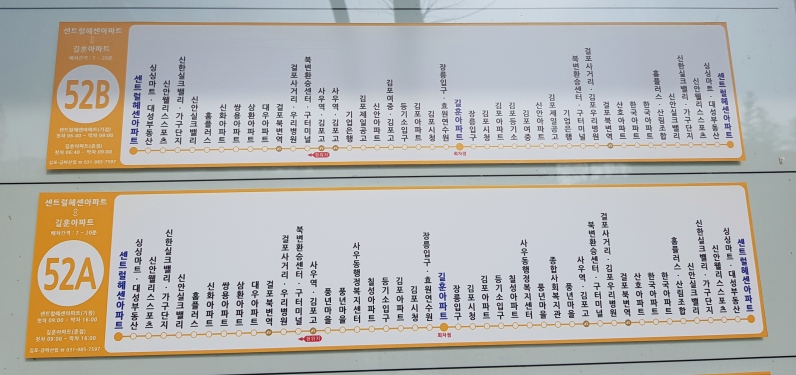 센트럴헤센아파트
길훈아파트
배차간격 : 7 ~ 20분
52B
센트럴헤센아파트(기점)
길훈아파트(종점)
센트럴헤센아파트
싱싱마트 · 대성부동산
신안웰리스스포츠
신한실크밸리 · 가구단지
신안실크밸리
홈플러스
신화아파트
쌍용아파트
삼환아파트
대우아파트
걸포북변역
걸포사거리 · 우리병원
북변환승센터 · 구터미널
사우역 · 김포고
사우역 · 김포고
기업은행
김포제일공고
신안아파트
김포여중 · 김포고
등기소입구
김포아파트
김포시청
장릉입구 · 효원연수원
길훈아파트
회차점
장릉입구
김포시청
김포아파트
김포등기소
김포여중
신안아파트
김포제일공고
기업은행
북변환승센터 · 구터미널
걸포사거리 · 김포우리병원
걸포북변역
산호아파트
한국아파트
한국아파트
홈플러스 · 산림조합
신안실크밸리
신한실크밸리 · 가구단지
신안웰리스스포츠
싱싱마트 · 대성부동산
센트럴헤센아파트
센트럴헤센아파트
길훈아파트
배차간격 : 7 ~ 20분
52A
센트럴헤센아파트(기점)
첫차 05:00 ~ 막차 16:00
길훈아파트(종점)
첫차 09:00 ~ 막차 16:00
센트럴헤센아파트
싱싱마트 · 대성부동산
신안웰리스스포츠
신한실크밸리 · 가구단지
신안실크밸리
홈플러스
신화아파트
쌍용아파트
삼환아파트
대우아파트
걸포북변역
걸포사거리 · 우리병원
북변환승센터 · 구터미널
사우역 · 김포고
풍년마을
풍년마을
사우동행정복지센터
칠성아파트
등기소입구
김포아파트
김포시청
장릉입구 · 효원연수원
길훈아파트
회차점
장릉입구
김포시청
김포아파트
등기소입구
칠성아파트
사우동행정복지센터
풍년마을
종합사회복지관
풍년마을
사우역 · 김포고
북변환승센터 · 구터미널
걸포사거리 · 김포우리병원
걸포북변역
산호아파트
한국아파트
한국아파트
홈플러스 · 산림조합
신안실크밸리
신한실크밸리 · 가구단지
신안웰리스스포츠
싱싱마트 · 대성부동산
센트럴헤센아파트